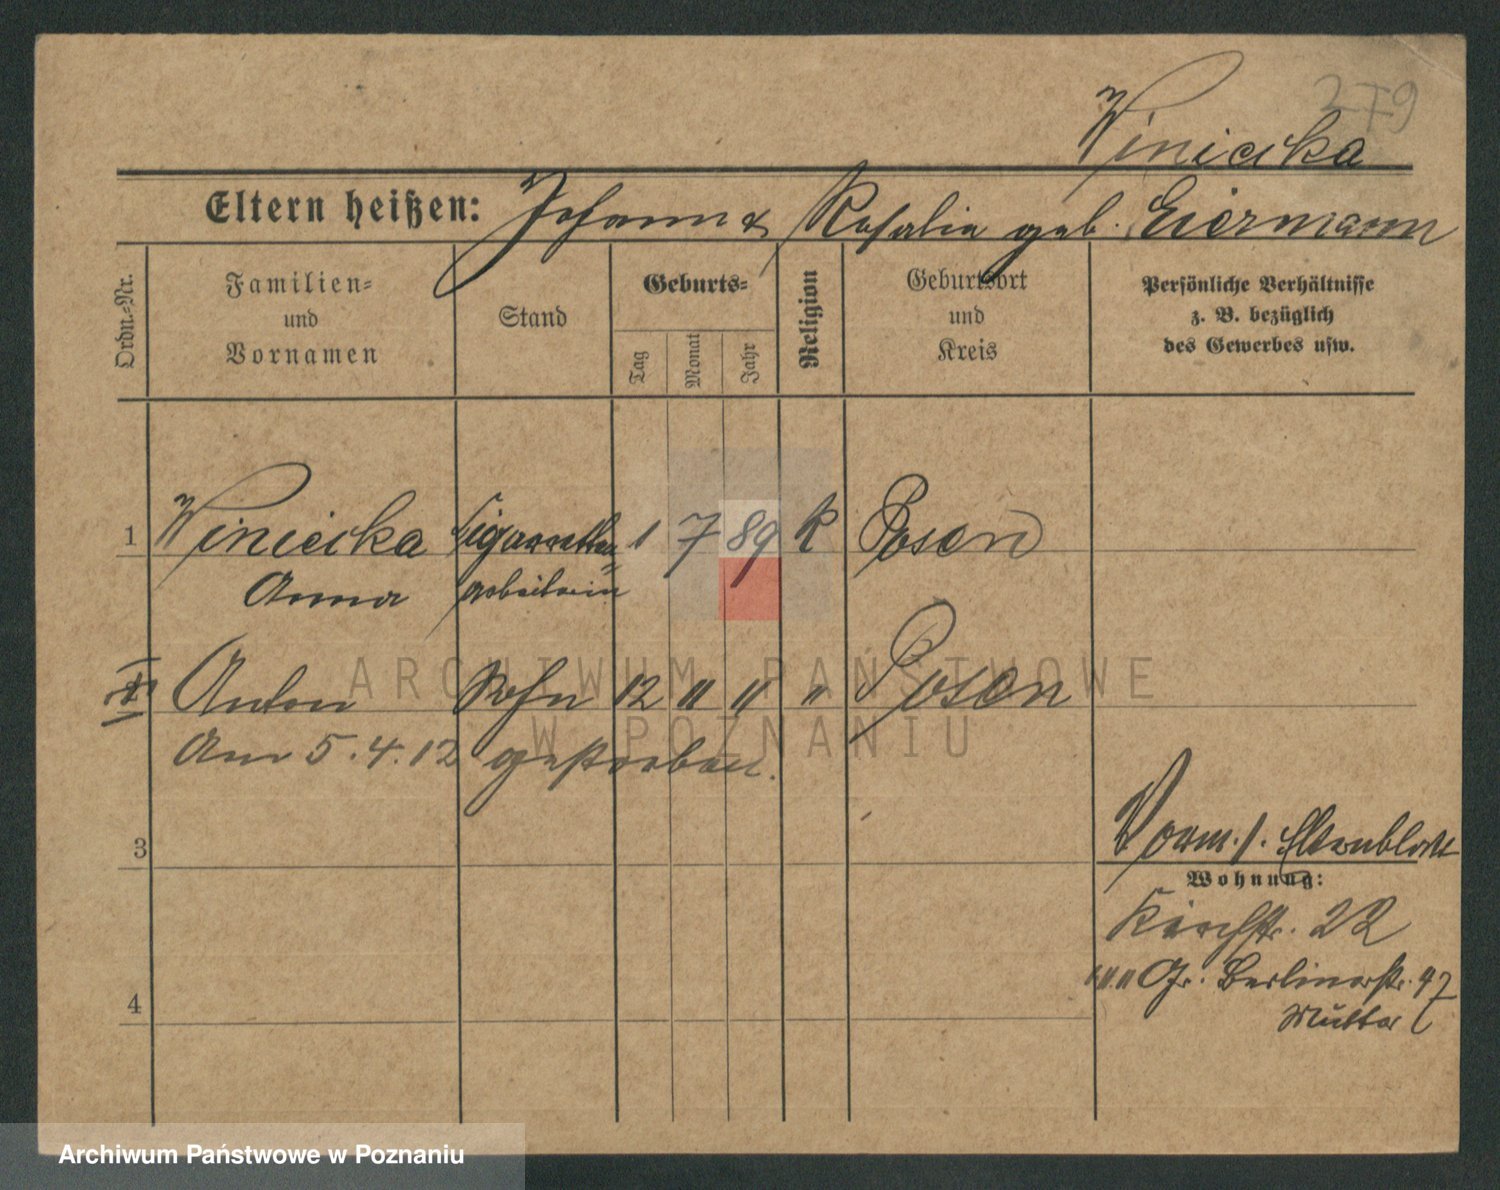 279
Winiecka
Eltern heißen: Johann & Rosalia geb. Eiermann
Ordn.-Nr.
Familien- und Vornamen
Stand
Geburts-
Tag
Monat
Jahr
Religion
Geburtsort und Kreis
Persönliche Verhältnisse z. B. bezüglich des Gewerbes usw.
1 Winiecka Cigaretten- 1 7 89 K Posen
Anna arbeiterin
I Anton Sohn 12 " " " Posen
Am 5.4.12 gestorben.
3
Vorm. s. Elternblatt
Wohnung:
Kirchstr. 22
Gr. Berlinerstr. 97
Mutter
4
ARCHIWUM PAŃSTWOWE
W POZNANIU
Archiwum Państwowe w Poznaniu